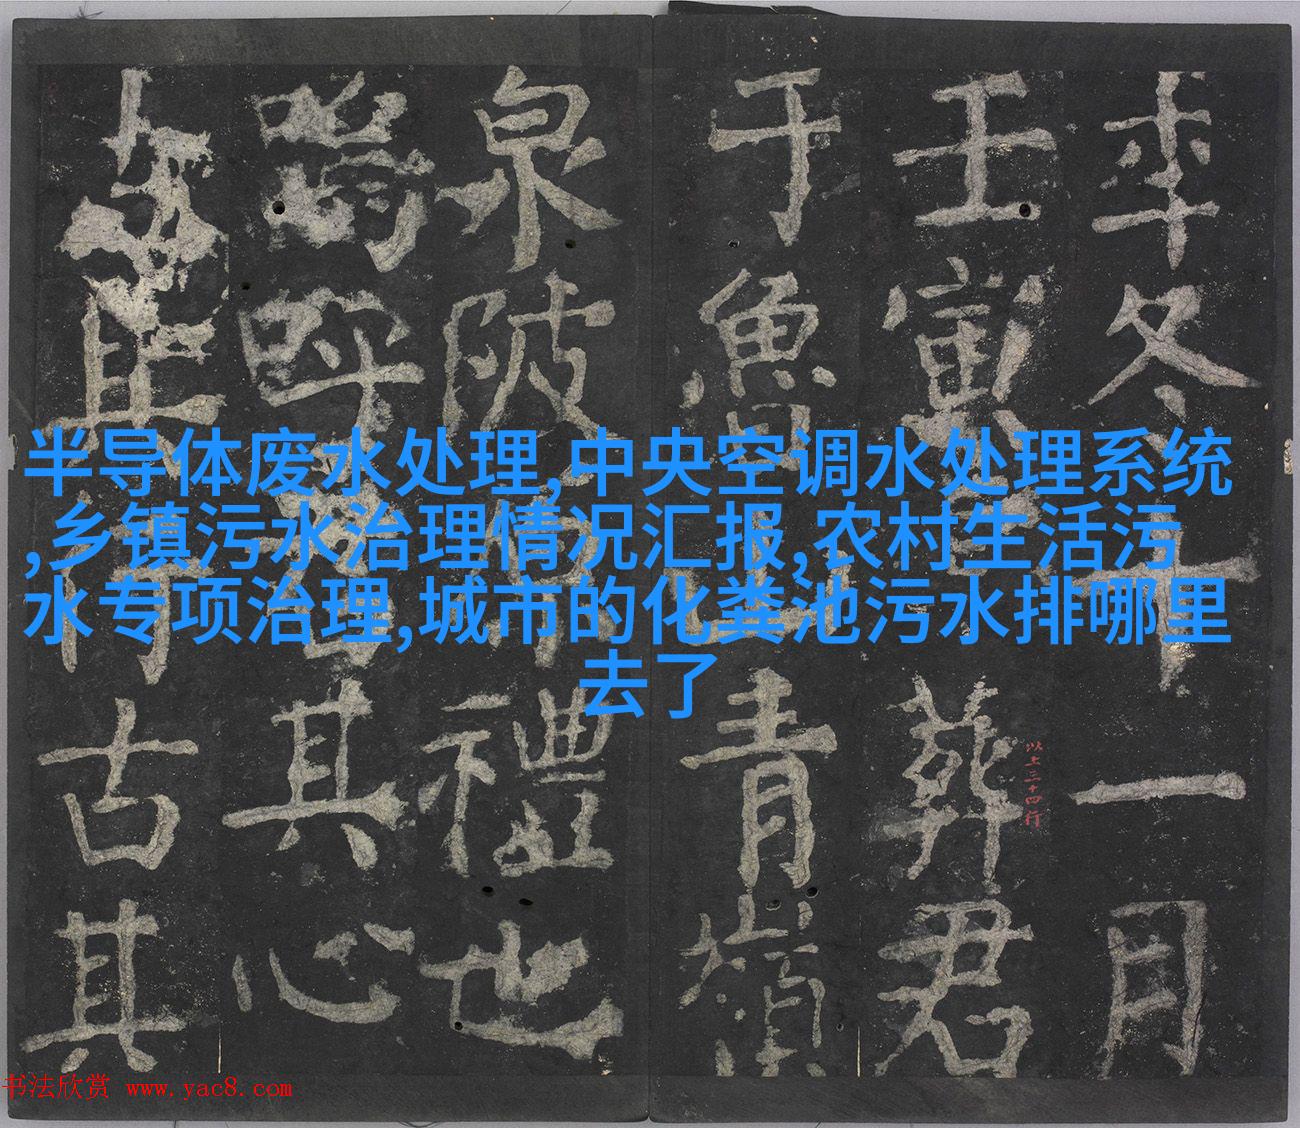 半导体废水处理,中央空调水处理系统
,乡镇污水治理情况汇报,农村生活污
水专项治理,城市的化粪池污水排哪里
去了
年冬十一月
壬寅虔葬君
以上三十四行
于魯山青嶺
泉陂原禮也
嗚呼君其心
古其行古其
书法欣赏 www.yac8.com